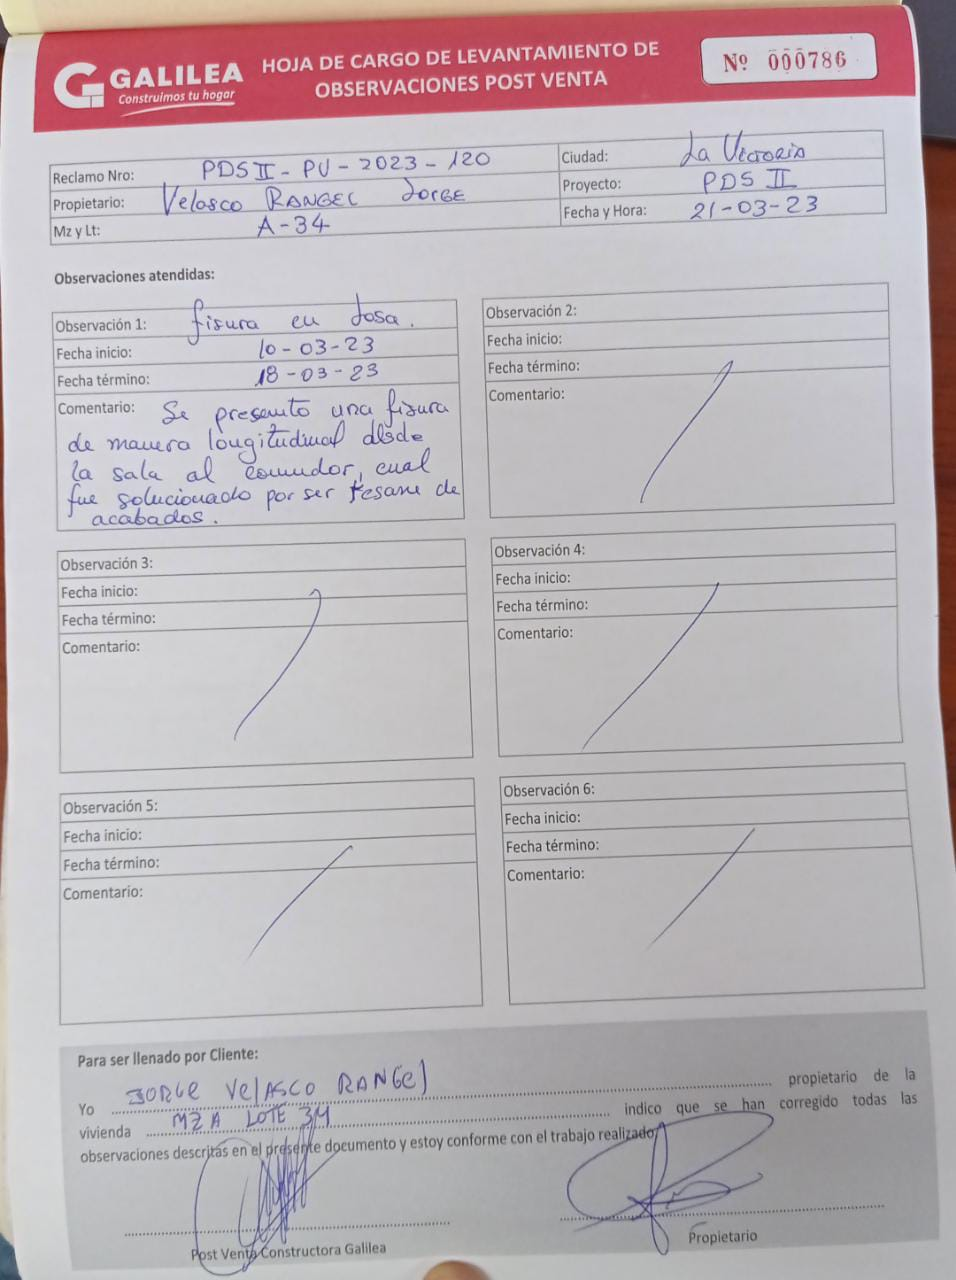 GALILEA
Construimos tu hogar
HOJA DE CARGO DE LEVANTAMIENTO DE
OBSERVACIONES POST VENTA
Nº 000786
Reclamo Nro: PDS II - PV - 2023 - 120
Propietario: Velasco RANGEL JORGE
Mz y Lt: A-34
Ciudad: La Victoria
Proyecto: PDS II
Fecha y Hora: 21-03-23
Observaciones atendidas:
Observación 1: fisura en losa.
Fecha inicio: 10-03-23
Fecha término: 18-03-23
Comentario: Se presento una fisura
de manera longitudinal desde
la sala al comedor, cual
fue solucionado por ser resane de
acabados.
Observación 2:
Fecha inicio:
Fecha término:
Comentario:
Observación 3:
Fecha inicio:
Fecha término:
Comentario:
Observación 4:
Fecha inicio:
Fecha término:
Comentario:
Observación 5:
Fecha inicio:
Fecha término:
Comentario:
Observación 6:
Fecha inicio:
Fecha término:
Comentario:
Para ser llenado por Cliente:
Yo JORGE VELASCO RANGEL propietario de la
vivienda MZ A LOTE 34 indico que se han corregido todas las
observaciones descritas en el presente documento y estoy conforme con el trabajo realizado.
Post Venta Constructora Galilea
Propietario